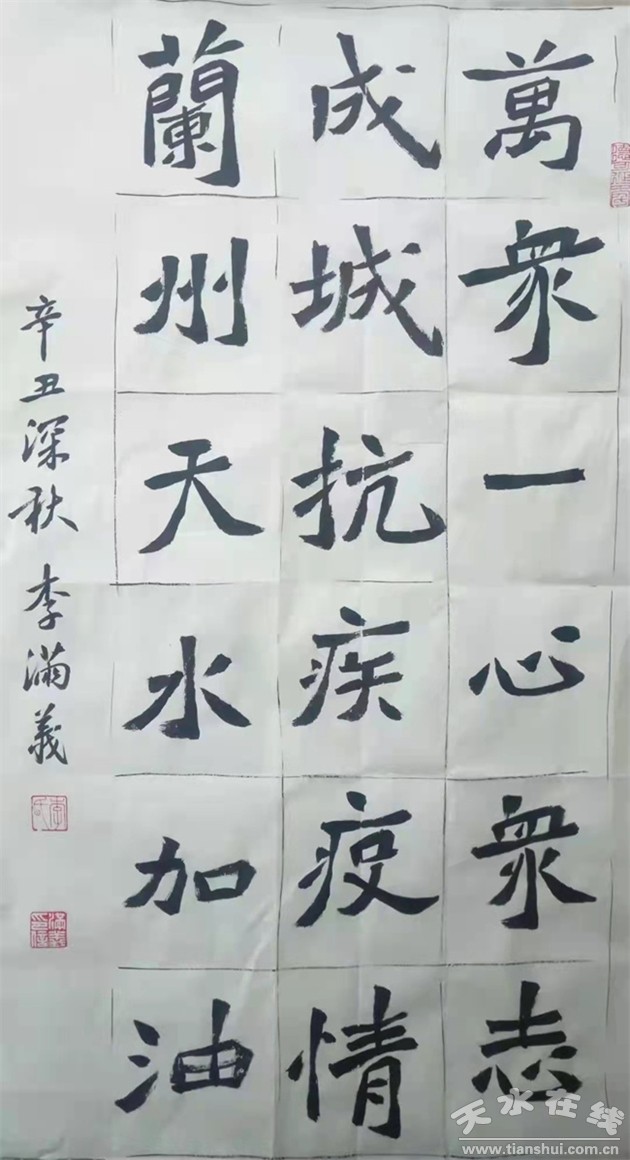 萬衆一心衆志
成城抗疾疫情
蘭州天水加油
辛丑深秋 李滿義
天水在线
www.tianshui.com.cn